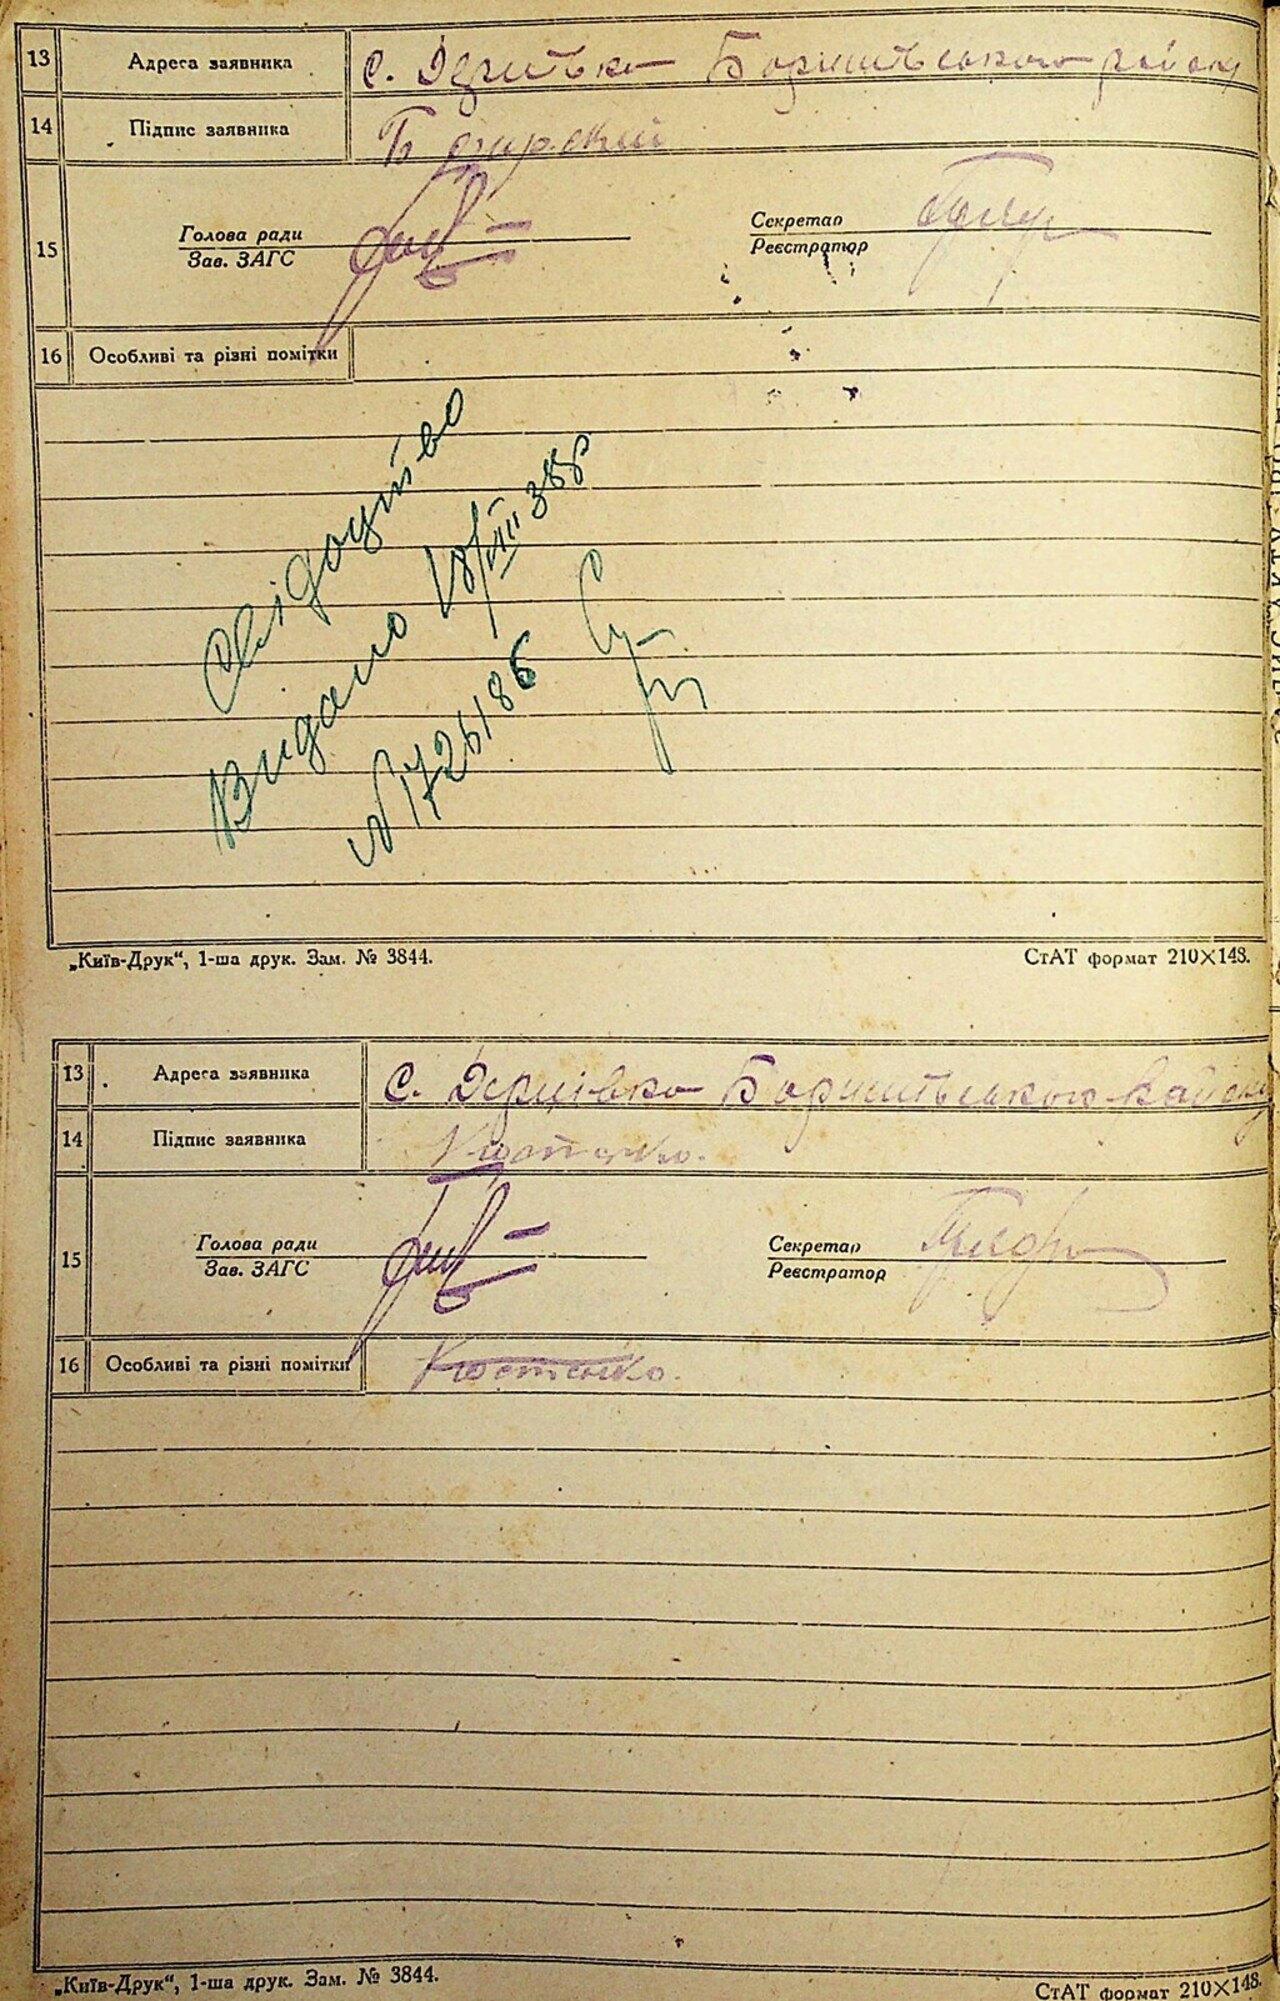 13 Адреса заявника с. Дернівка Баришівського району
14 Підпис заявника
15 Голова ради Секретар
Зав. ЗАГС Реєстратор
16 Особливі та різні помітки
Свідоцтво
Видано 18/VIII 38р
№ 1726186
„Київ-Друк“, 1-ша друк. Зам. № 3844. СтАТ формат 210×148.
13 Адреса заявника С. Дернівка Баришівського району
14 Підпис заявника Костенко.
15 Голова ради Секретар
Зав. ЗАГС Реєстратор
16 Особливі та різні помітки Костенко.
„Київ-Друк“, 1-ша друк. Зам. № 3844. СтАТ формат 210×148.